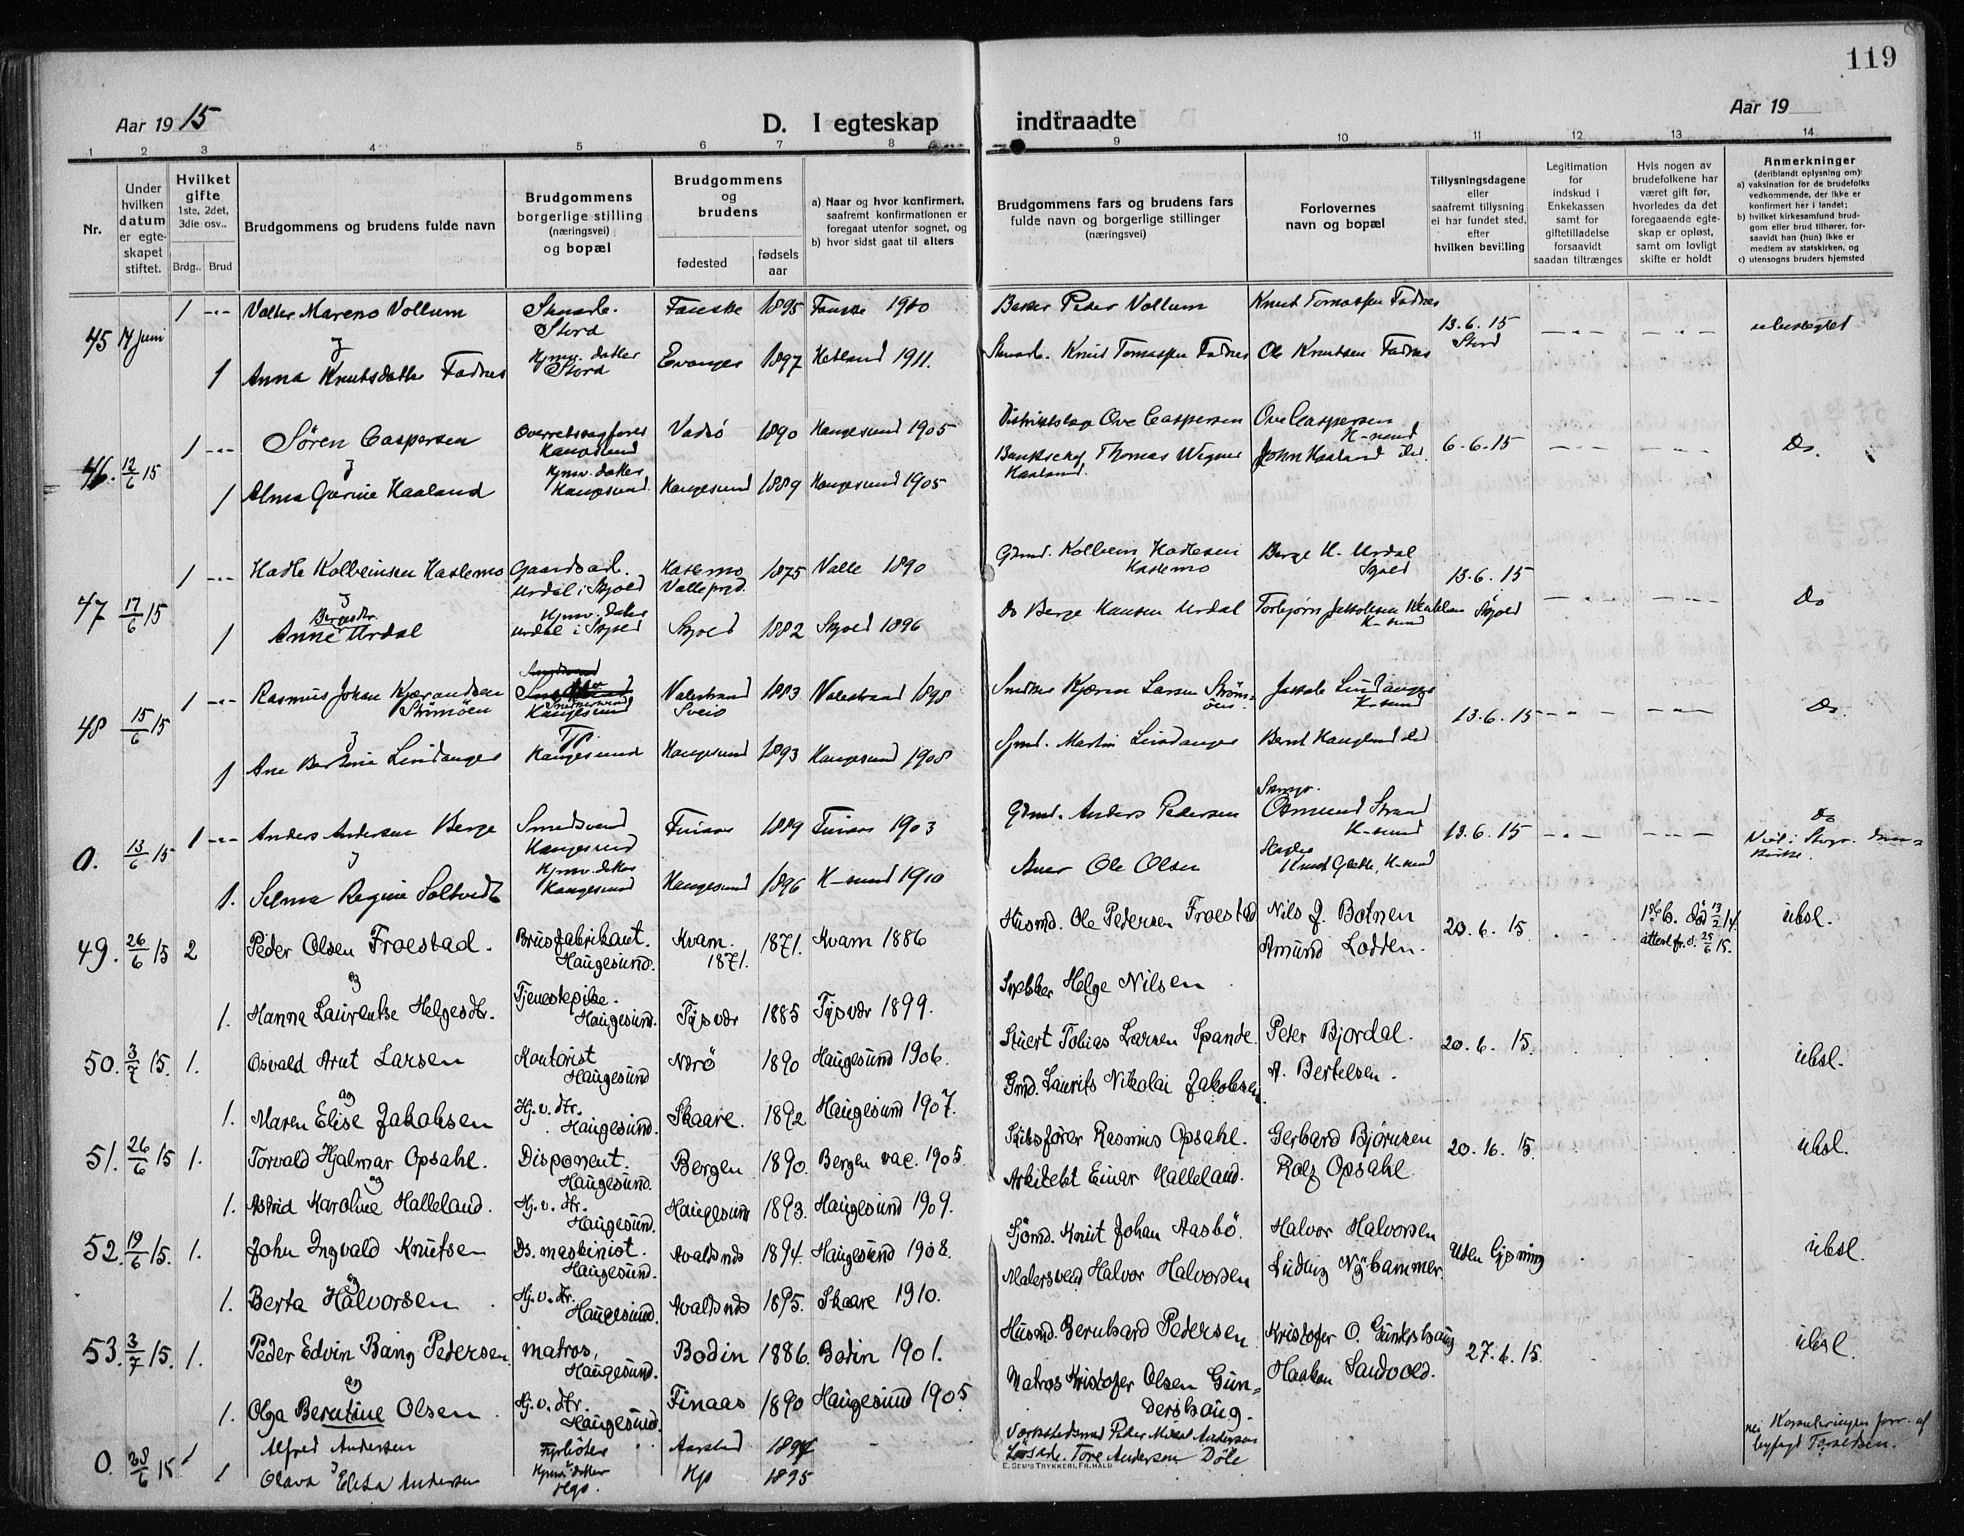 119
Aar 1915
D. I egteskap indtraadte
Aar 19
1 2 3 4 5 6 7 8 9 10 11 12 13 14
Nr.
Under hvilken datum er egteskapet stiftet.
Hvilket gifte 1ste, 2det, 3die osv..
Brdg.. Brud
Brudgommens og brudens fulde navn
Brudgommens borgerlige stilling (næringsvei) og bopæl
Brudgommens og brudens
fødested
fødselsaar
a) Naar og hvor konfirmert, saafremt konfirmationen er foregaat utenfor sognet, og
b) hvor sidst gaat til alters
Brudgommens fars og brudens fars fulde navn og borgerlige stillinger (næringsvei)
Forlovernes navn og bopæl
Tillysningsdagene eller saafremt tillysning ei har fundet sted, efter hvilken bevilling
Legitimation for indskud i Enkekassen samt for giftetilladelse forsaavidt saadan tiltrænges
Hvis nogen av brudefolkene har været gift før, hvorledes da det foregaaende egteskap er opløst, samt om lovligt skifte er holdt
Anmerkninger (deriblandt oplysning om):
a) vaksination for de brudefolks vedkommende, der ikke er konfirmert her i landet;
b) hvilket kirkesamfund brudgom eller brud tilhører, forsaavidt han (hun) ikke er medlem av statskirken, og
c) utensogns bruders hjemsted
45 14 juni 1 Valter Mareno Vollum Stord Fauske 1895 Fauske 1910 Baker Peder Vollum Knut Tomassen Fadnes 13.6.15 Stord ubeslegtet
1 Anna Knutsdatter Fadnes Hjmv. datter Stord Evanger 1897 Hetland 1911. Knut Tomassen Fadnes Ole Knutsen Fadnes
46. 12/6 15 1 Søren Caspersen Overretssagfører Haugesund Vadsø 1890 Haugesund 1905 Ove Caspersen Ove Caspersen H-sund 6.6.15 Do.
1 Alma Gurine Haaland Hjmv. datter Haugesund Haugesund 1889 Haugesund 1905 Thomas Wegner Haaland John Haaland
47 17/6 15 1 Hadle Kolbeinsen Haslemo Gaardsarb. Urdal i Skjold Haslemo Valle prgd. 1875 Valle 1890 Gbmd. Kolbein Hadlesen Haslemo Berge H. Urdal Skjold 13.6.15 Do
1 Anne Bergesdtr. Urdal Hjmv. datter Urdal i Skjold Skjold 1882 Skjold 1896 Do Berge Hansen Urdal Torbjørn Jakobsen H-sund Skjold
48 15/6 15 1 Rasmus Johan Kjærandsen Strømøen Haugesund Valestrand Sveio 1883 Valestrand 1898 Snedker Kjæran Larsen Strømøen Lindanger H-sund 13.6.15 Do.
1 Ane Bertine Lindanger Haugesund Haugesund 1893 Haugesund 1908 Sjmd. Martin Lindanger Bernt Hauglund
0. 13/6 15 1 Anders Andersen Berge Smedsvend Haugesund Finaas 1889 Finaas 1903 Gbmd. Anders Pedersen Osmund Strand H-sund 13.6.15 Do
1. Selma Regine Soltvedt Hjmv. datter Haugesund Haugesund 1896 H-sund 1910 Ole Olsen H-sund
49. 26/6 15 2 Peder Olsen Froestad. Brusfabrikant. Haugesund. Kvam. 1871. 1871. Kvam 1886 Husmd. Ole Pedersen Froestad Nils J. Botnen 20.6.15. død 13/2 14. attest fr. s. 25/6 15. ubsl.
og Amund Lodden.
1. Hanna Laurentse Helgesdtr. Tjenestepike. Haugesund. Tysvær 1885 Tysvær 1899. Helge Nilsen
50. 3/7 15. 1. Osvald Arnt Larsen Kontorist Haugesund Nærø 1890 Haugesund 1906. Stuert Tobias Larsen Spande. Peter Bjordal. 20.6.15. ubsl.
og
1. Maren Elise Jakobsen Hj.v. dtr. Haugesund. Skaare. 1892 Haugesund 1907. Gmd. Laurits Nikolai Jakobsen A. Bertelsen.
51. 26/6 15 1. Torvald Hjalmar Opsahl. Disponent. Haugesund. Bergen 1890. Bergen vac. 1905. Skibsfører Rasmus Opsahl. Gerhard Bjørnsen 20.16.15. ubsl.
og
1. Astrid Karoline Halleland. Hj.v. dtr. Haugesund. Haugesund 1893. Haugesund 1909. Arkitekt Einar Halleland. Rolf Opsahl.
52. 19/6 15. 1. John Ingvald Knutsen Ds. maskinist. Haugesund. Avaldsnds 1894. Haugesund 1908. Sjømd. Knut Johan Aasbö. Halvor Halvorsen Uten lysning ubsl.
og
1. Berta Halvorsen Hj.v. dtr. Haugesund. Avaldsnds 1895. Skaare 1910. Malersvend Halvor Halvorsen Ludvig Nyhammer.
53. 3/7 15. 1. Peder Edvin Bang Pedersen. matros, Haugesund. Bodin 1886. Bodin 1901. Husmd. Bernhard Pedersen Kristofer O. Gundershaug 27.6.15. ubsl.
og
1. Olga Berntine Olsen Hj.v. dtr. Haugesund. Finaas 1890 Haugesund 1905. Matros Kristofer Olsen Gundershaug. Haakon Sandvold.
0. 28/6 15 1 Alfred Andersen Fyrbøter 1894 Peder Andersen
1 Olava Elisa Andersen Hjmv. datter Hgs. 1895 Tore Andersen Döle
E. SEM'S TRYKKERI, FR.HALD